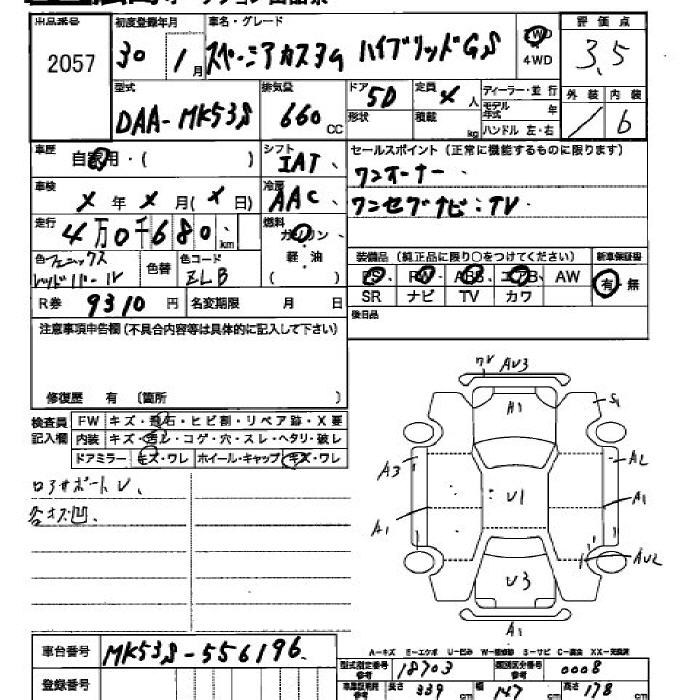 出品番号 初度登録年月 車名・グレード 評価点
2057 30 1月 スペーシアカスタム ハイブリッドGS 2WD 4WD 3.5
型式 排気量 ドア 5D 定員 x 人 ディーラー・並行 外装 内装
DAA-MK53S 660 CC 形状 積載 kg モデル年式 年 ハンドル 左・右 / b
車歴 自家用・( ) シフト IAT セールスポイント(正常に機能するものに限ります)
車検 x 年 x 月(x 日) 冷房 AAC ワンオーナー、
ワンセグナビ:TV
走行 4万0千680 km 燃料 ガソリン・軽・油 ( )
色 フェニックスレッドパール 色替 色コード ZLB 装備品(純正品に限り○をつけてください) 新車保証書
PS PW ABS エアB AW 有・無
SR ナビ TV カワ
R券 9310 円 名変期限 月 日 後日品
注意事項申告欄(不具合内容等は具体的に記入して下さい)
修復歴 有 〔箇所 〕
検査員記入欄 FW キズ・飛石・ヒビ割・リペア跡・X要
内装 キズ・汚レ・コゲ・穴・スレ・ヘタリ・破レ
ドアミラー キズ・ワレ ホイール・キャップ キズ・ワレ
ロアサポートU、
各キズ凹.
AU3
A1 S1
A3 A2
U1 A1
A1
AU2
U3
A1
A-キズ E-エクボ U-凹み W-補修跡 S-サビ C-腐食 XX-交換済
車台番号 MK53S-556196
型式指定番号 18703 類別区分番号 0008
登録番号 長さ 339 cm 幅 147 cm 高さ 178 cm